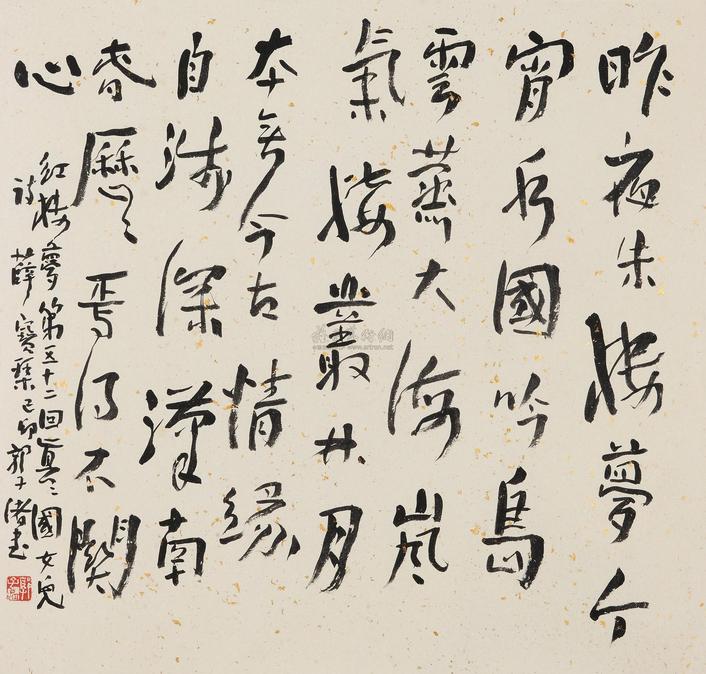 昨夜朱樓夢今
宵水國吟島
雲蒸大海嵐
氣接叢林月
本無今古情緣
自淺深漢南
春歷〻焉得不關
心
紅樓夢第五十二回真〻國女兒
詩薛寶琴己卯郭子緒書